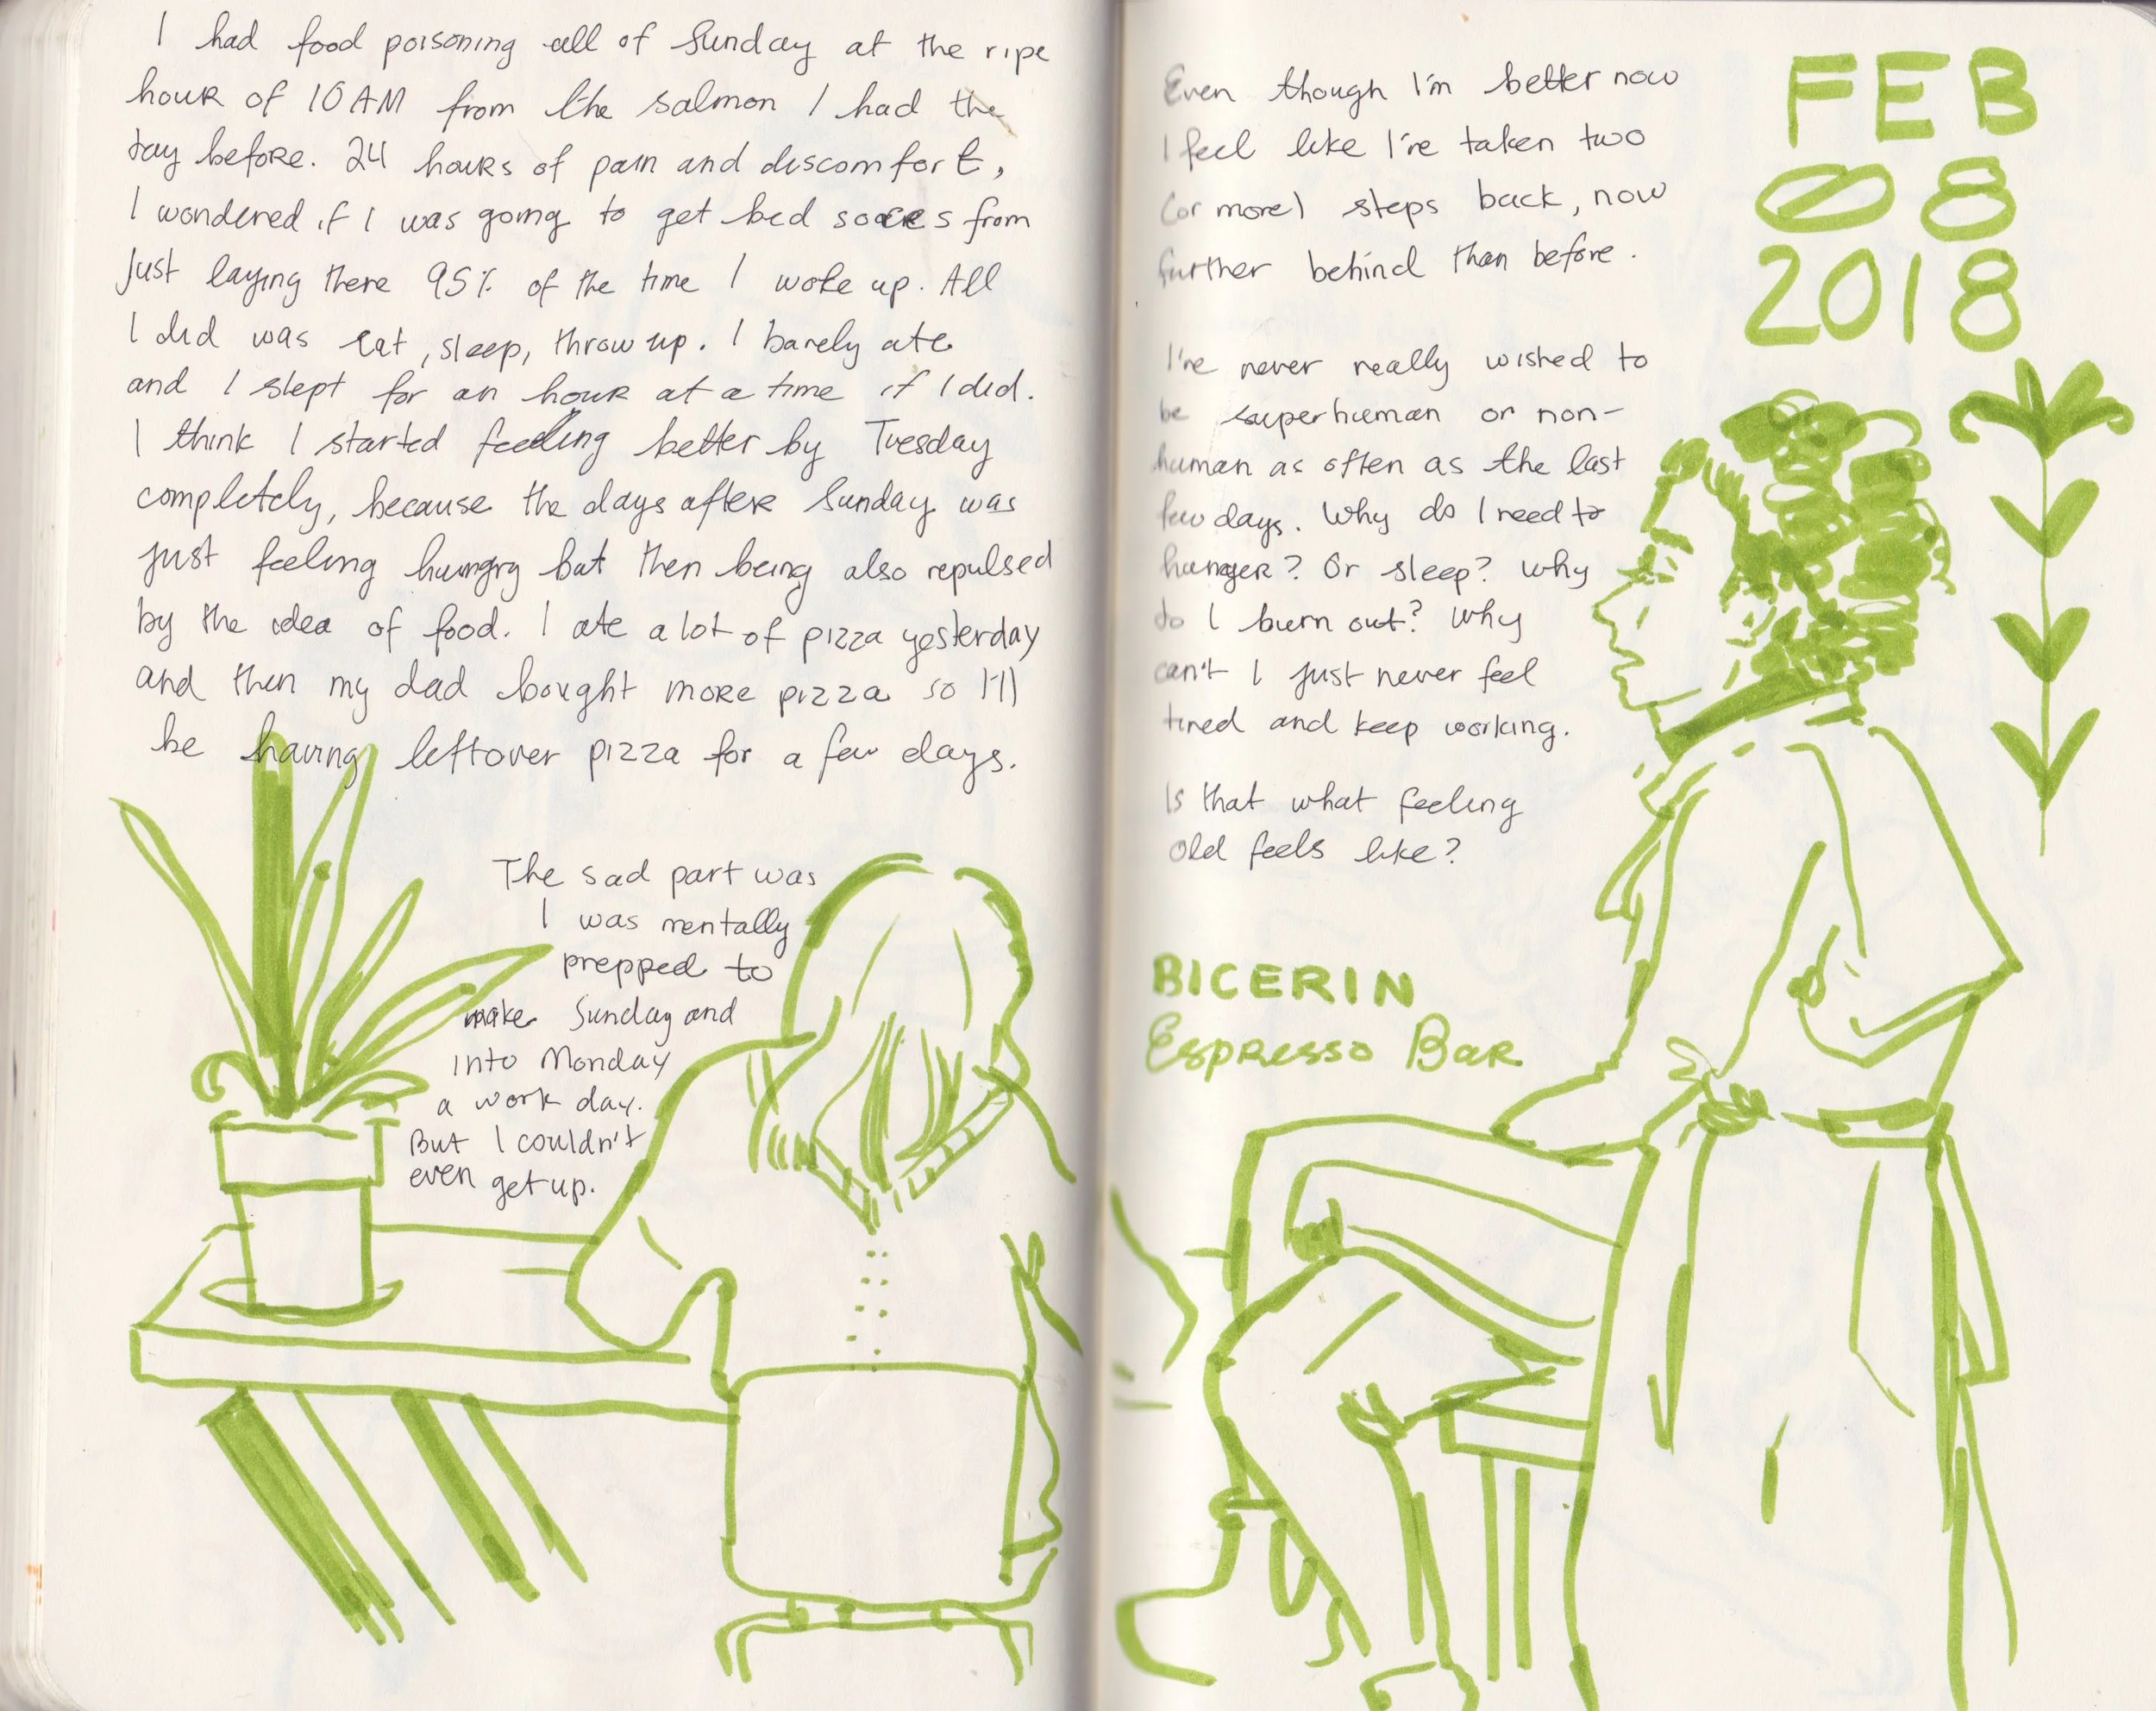 I had food poisoning all of Sunday at the ripe
hour of 10 AM from the salmon I had the
day before. 24 hours of pain and discomfort,
I wondered if I was going to get bed sores from
just laying there 95% of the time I woke up. All
I did was eat, sleep, throw up. I barely ate
and I slept for an hour at a time if I did.
I think I started feeling better by Tuesday
completely, because the days after Sunday was
just feeling hungry but then being also repulsed
by the idea of food. I ate a lot of pizza yesterday
and then my dad bought more pizza so I'll
be having leftover pizza for a few days.
The sad part was
I was mentally
prepped to
make Sunday and
into Monday
a work day.
But I couldn't
even get up.
FEB
08
2018
Even though I'm better now
I feel like I've taken two
(or more) steps back, now
further behind than before.
I've never really wished to
be superhuman or non-
human as often as the last
few days. Why do I need to
hunger? Or sleep? Why
do I burn out? Why
can't I just never feel
tired and keep working.
Is that what feeling
old feels like?
BICERIN
Espresso Bar